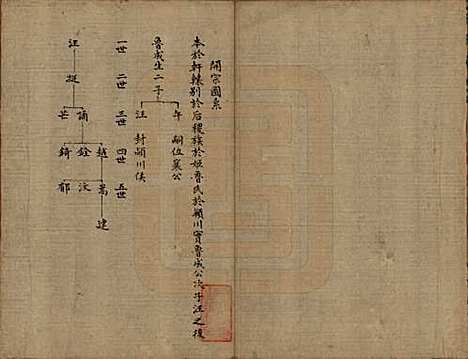 開宗圖系
本於軒轅别於后稷族於姬魯氏於潁川實魯成公次子汪之後
魯成生二子
午 嗣位襄公
汪 封潁川侯
一世 二世 三世 四世 五世
汪 挺
誦 芒
越 銓 錡
嵩 汶 郁
建